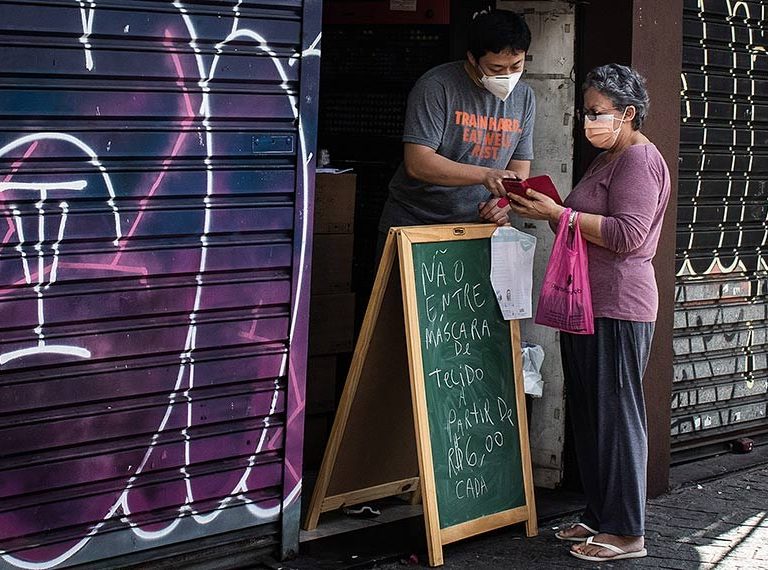 TRAIN HARD.
EAT WELL
REST
NÃO
ENTRE
MÁSCARA
DE
TECIDO
A
PARTIR DE
R$6,00
CADA